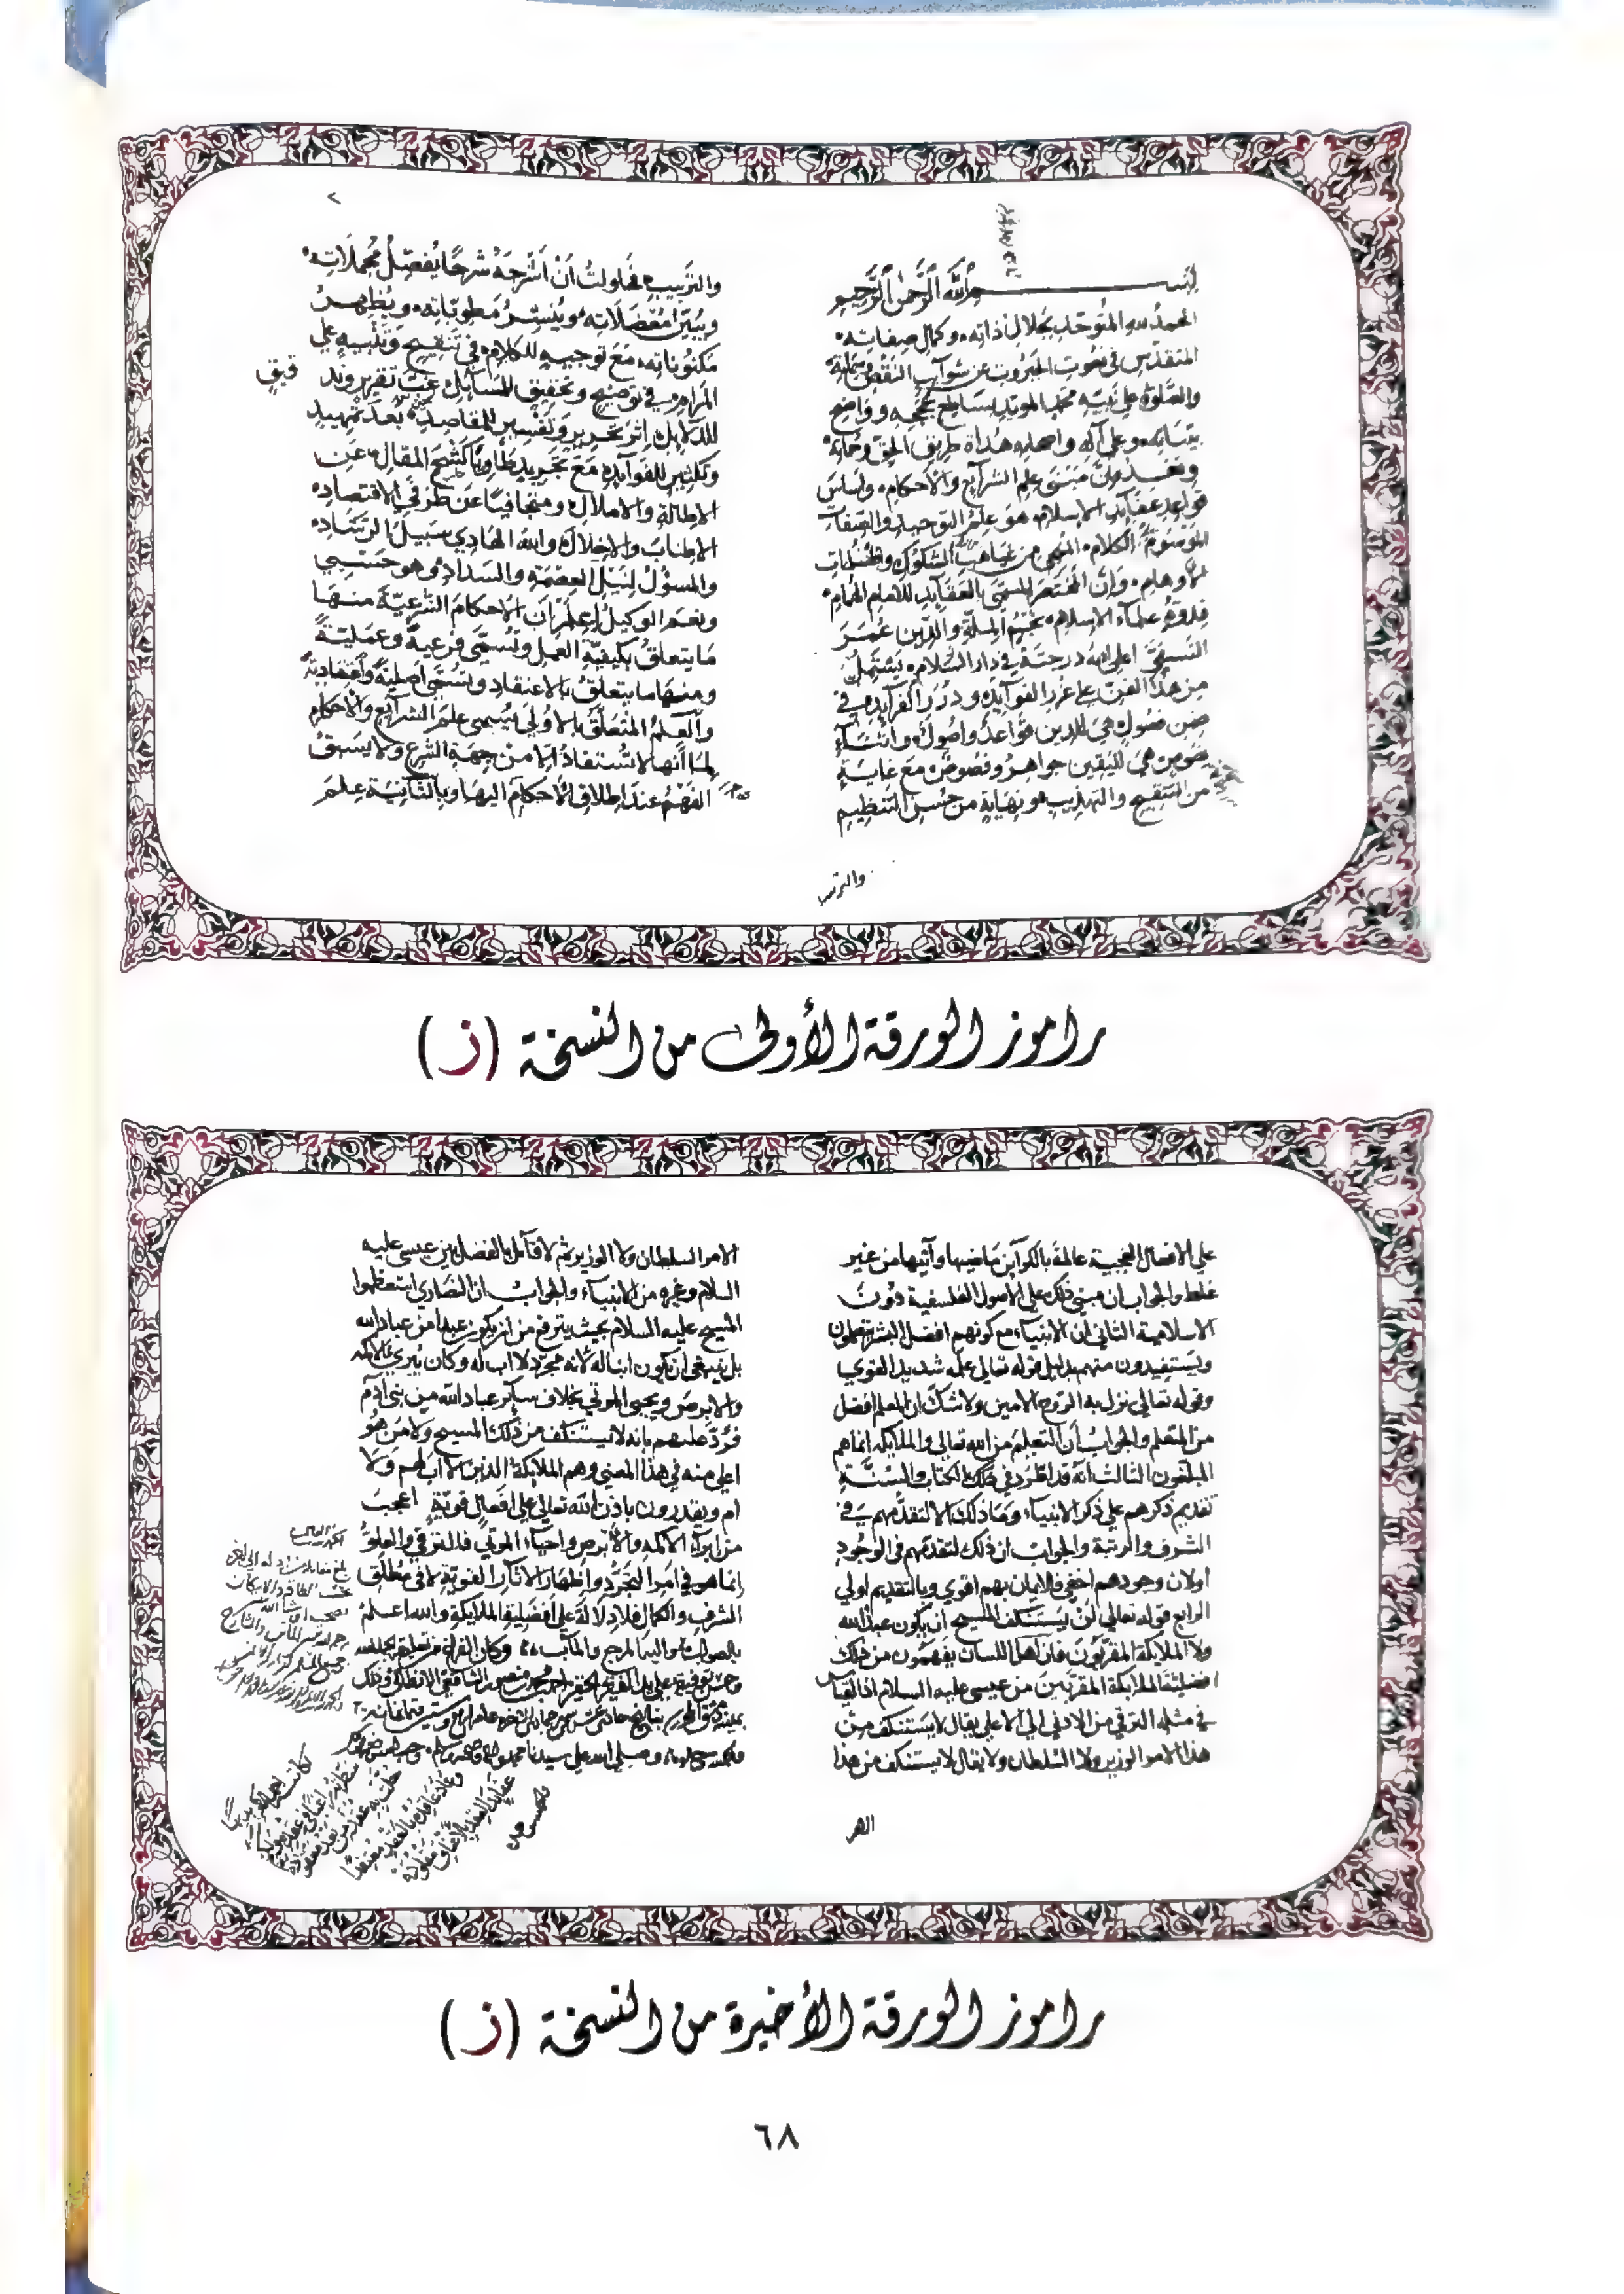 بسم الله الرحمن الرحيم
الحمد لله المتوحد بجلال ذاته وكمال صفاته
المتقدس في نعوت الجبروت عن شوآئب النقص وسماته
والصلوة على نبيه محمد المويد بساطع حججه وواضح
بيناته وعلى آله واصحابه هداة طريق الحق وحماته
وبعد فان مبنى علم الشرآيع والاحكام واساس
قواعد عقايد الاسلام هو علم التوحيد والصفات
الموسوم بالكلام المنجي من غياهب الشكوك وظلمات
الاوهام وان المختصر المسمى بالعقايد للامام الهمام
قدوة علماء الاسلام نجم الملة والدين عمر
النسفي اعلى الله درجته في دار السلام يشتمل
من هذا الفن على غرر الفوآيد ودرر الفرآيد في
ضمن فصول هي للدين قواعد واصول واثناء
نصوص هي لليقين جواهر وفصوص مع غاية
من التنقيح والتهذيب ونهاية من حسن التنظيم
والترتيب
٢
والترتيب فحاولت أن أشرحه شرحا يفصل مجملاته
ويبين معضلاته وينشر مطوياته ويظهر
مكنوناته مع توجيه للكلام في تنقيح وتنبيه على
المرام في توضيح وتحقيق للمسايل غب تقرير وتد
قيق
للدلايل اثر تحرير وتفسير للمقاصد بعد تمهيد
وتكثير للفوآيد مع تجريد طاويا كشح المقال عن
الاطالة والاملال ومتجافيا عن طرفي الاقتصاد
الاطناب والاخلال والله الهادي سبيل الرشاد
والمسؤل لنيل العصمة والسداد وهو حسبي
ونعم الوكيل اعلم ان الاحكام الشرعية منها
ما يتعلق بكيفية العمل وتسمى فرعية وعملية
ومنها ما يتعلق بالاعتقاد وتسمى اصلية واعتقادية
والعلم المتعلق بالاولى يسمى علم الشرآيع والاحكام
لما انها لا تستفاد الا من جهة الشرع ولا يسبق
الفهم عند اطلاق الاحكام الا اليها وبالثانية علم
راموز الورقة الأولى من النسخة (ز)
على الافعال العجيبة عالمة بالكوآين ماضيها وآتيها من غير
غلط والجواب ان مبنى ذلك على الاصول الفلسفية دون
الاسلامية الثاني ان الانبياء مع كونهم افضل البشر يتعلمون
ويستفيدون منهم بدليل قوله تعالى علمه شديد القوي
وقوله تعالى نزل به الروح الامين ولا شك ان المعلم افضل
من المتعلم والجواب أن التعلم من الله تعالى والملايكة انما هم
المبلغون الثالث انه قد اطرد في ذلك الكتاب والسنة
تقديم ذكرهم على ذكر الانبياء وما ذلك الا لتقدمهم في
الشرف والرتبة والجواب ان ذلك لتقدمهم في الوجود
او لان وجودهم اخفى فالايمان بهم اقوي وبالتقديم اولي
الرابع قوله تعالى لن يستنكف المسيح ان يكون عبدا لله
ولا الملايكة المقربون فان اهل اللسان يفهمون من ذلك
افضلية الملايكة المقربين من عيسى عليه السلام اذ القياس
في مثله الترقي من الادنى الى الاعلى يقال لا يستنكف من
هذا الامر الوزير ولا السلطان ولا يقال لا يستنكف من هذا
الامر
الامر السلطان ولا الوزير ثم لا قآئل بالفضل بين عيسى عليه
السلام وغيره من الانبياء والجواب ان النصاري استعظموا
المسيح عليه السلام بحيث يترفع من ان يكون عبدا من عباد الله
بل ينبغي أن يكون ابنا له لانه مجرد لا اب له وكان يبري الاكمه
والابرص ويحيى الموتي بخلاف سآئر عباد الله من بني آدم
فرد عليهم بانه لا يستنكف من ذلك المسيح ولا من هو
اعلى منه في هذا المعنى وهم الملايكة الذين لا اب لهم ولا
ام ويقدرون باذن الله تعالى على افعال قوية اعجب
من ابرآء الاكمه والابرص واحياء الموتي فالترقي والعلو
انما هو في امر التجرد واظهار الاثار القوية لا في مطلق
الشرف والكمال فلا دلالة على افضلية الملايكة والله اعلم
بالصواب واليه المرجع والمآب وكان الفراغ من تعليقه بحمد الله
وحسن توفيقه على يد الفقير الحقير احمد بن محمد بن منصور الشافعي
وصلى الله على سيدنا محمد واله وصحبه وسلم
راموز الورقة الأخيرة من النسخة (ز)
٦٨